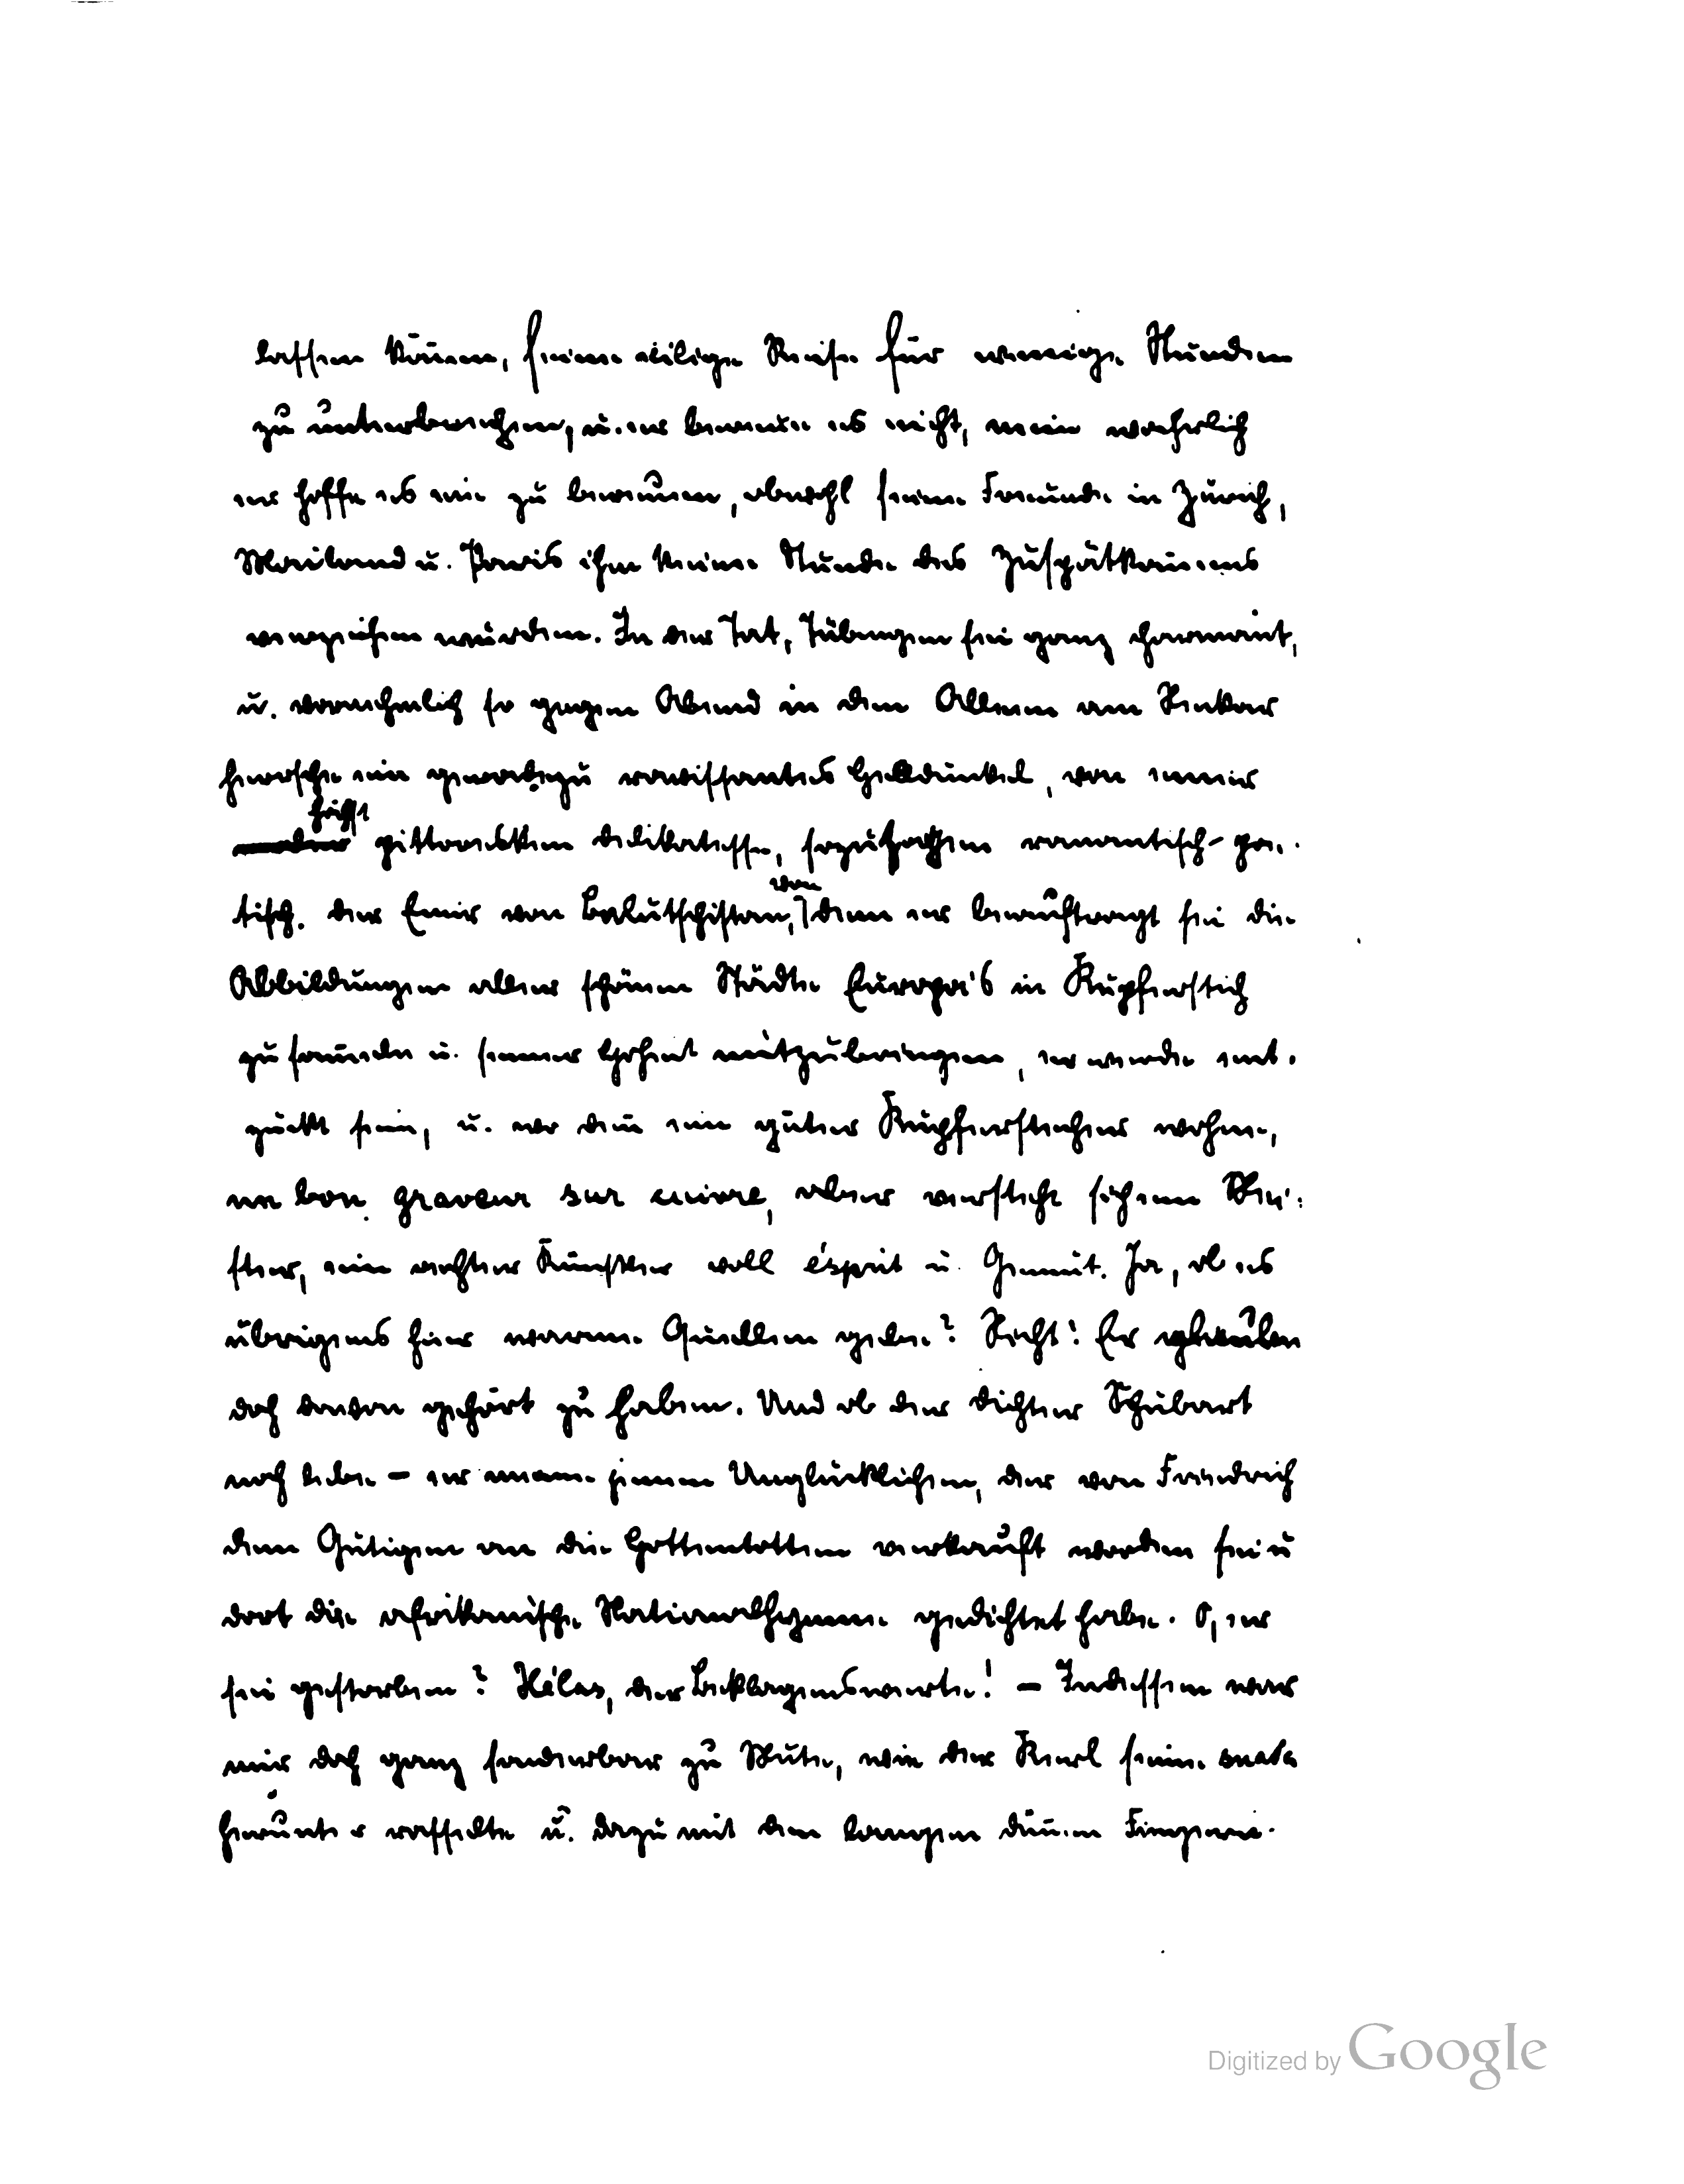 lassen können, seine eilige Reise für wenige Stunden
zu unterbrechen, u. er bereue es nicht, nein wahrlich
er hoffe es nie zu bereuen, obwohl seine Freunde in Zürich,
Mailand u. Paris ihm keine Stunde des Zuspätkommens
verzeihen würden. In der Tat, Tübingen sei ganz charmant,
u. vornehmlich so gegen Abend in den Alleen am Neckar
herrsche ein geradezu ravissantes Helldunkel, von einer
höchst
pittoresken Delikatesse, sozusagen romantisch-poe-
tisch. Der Emir von Balutschistan,
von
dem er beauftragt sei die
Abbildungen aller schönen Städte Europa's in Kupferstich
zu senden u. seiner Hoheit mitzubringen, er werde ent-
zückt sein, u. wo denn ein guter Kupferstecher wohne,
un bon graveur sur cuivre, aber versteht sich ein Mei-
ster, ein echter Künstler voll ésprit u. Gemüt. Ja, ob es
übrigens hier warme Quellen gebe? Nicht? Er glaube
doch davon gehört zu haben. Und ob der Dichter Schubart
noch lebe – er meine jenen Unglücklichen, der von Friedrich
dem Gütigen an die Hottentotten verkauft worden sei u
dort die afrikanische Nationalhymne gedichtet habe. O, er
sei gestorben? Hélas, der Beklagenswerte! – Indessen war
mir doch ganz sonderbar zu Mute, wie der Kerl seine
herunter rasselte u. dazu mit den langen dünnen Fingern